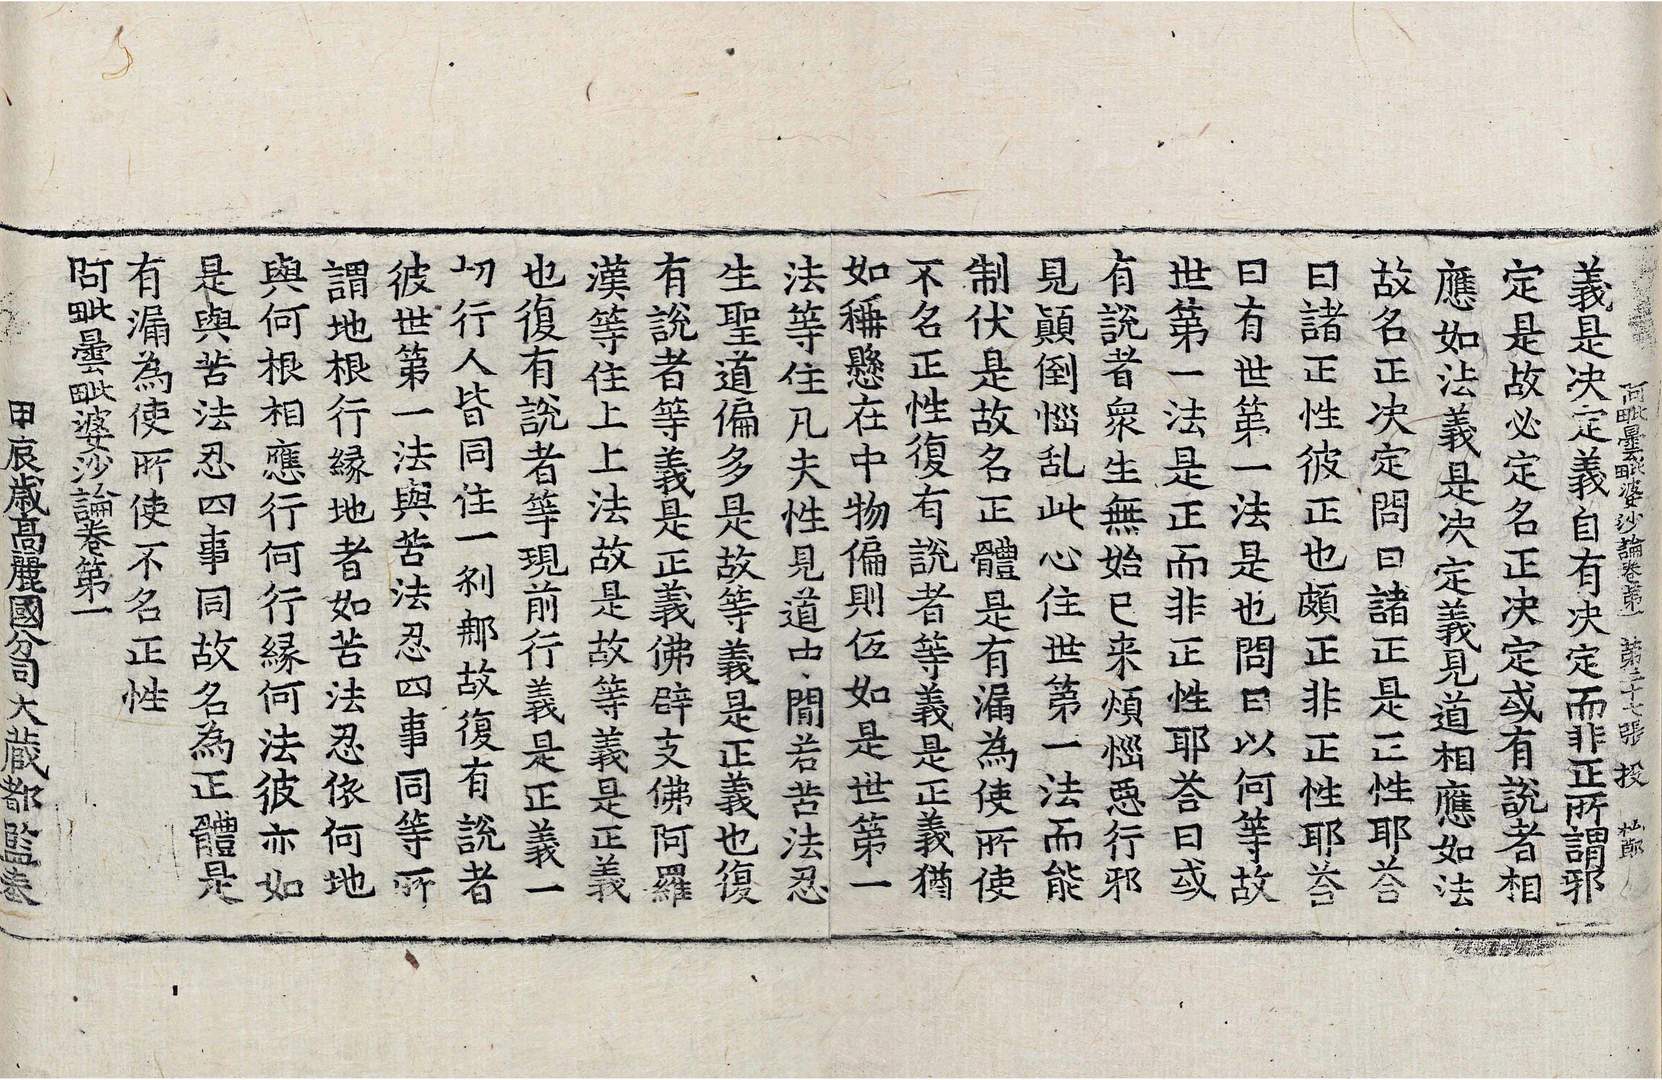 阿毗曇毗婆沙論卷第一 第三十七張 投
義是决定義自有决定而非正所謂邪
定是故必定名正决定或有說者相
應如法義是决定義見道相應如法
故名正决定問曰諸正是正性耶荅
曰諸正性彼正也頗正非正性耶荅
曰有世第一法是也問曰以何等故
世第一法是正而非正性耶荅曰或
有說者衆生無始已来煩惱惡行邪
見顚倒惱乱此心住世第一法而能
制伏是故名正體是有漏為使所使
不名正性復有說者等義是正義猶
如稱懸在中物偏則伍如是世第一
法等住凡夫性見道中間若苦法忍
生聖道偏多是故等義是正義也復
有說者等義是正義佛辟支佛阿羅
漢等住上上法故是故等義是正義
也復有說者等現前行義是正義一
切行人皆同住一剎那故復有說者
彼世第一法與苦法忍四事同等所
謂地根行縁地者如苦法忍依何地
與何根相應行何行縁何法彼亦如
是與苦法忍四事同故名為正體是
有漏為使所使不名正性
阿毗曇毗婆沙論卷第一
甲辰歲高麗國分司大藏都監奉